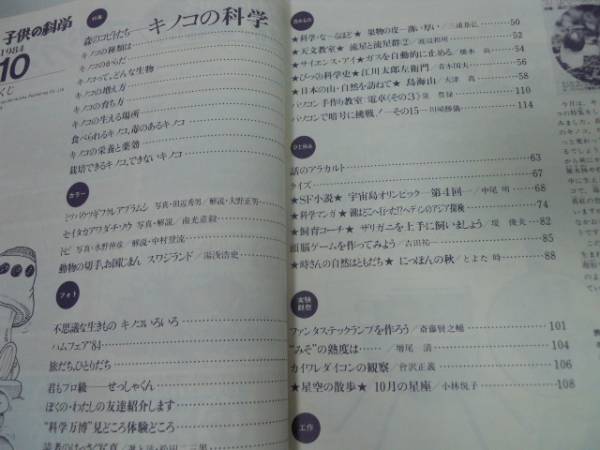 子供の科学
1984
10
くじ
特集
キノコの科学
森のコビトたち
キノコの種類は
キノコのからだ
キノコって、どんな生物
キノコの増え方
キノコの育ち方
キノコの生える場所
食べられるキノコ、毒のあるキノコ
キノコの栄養と薬効
栽培できるキノコ、できないキノコ
カラー
ミツバツツギフクレアブラムシ 写真・田辺秀男/解説・大野正男
セイタカアワダチソウ 写真・解説/南光重毅
トビ 写真・水野伸彦/解説・中村登流
動物の切手、お国じまん スワジランド/湯浅浩史
フォト
不思議な生きもの キノコいろいろ
ハムフェア'84
旅だち、ひとりだち
君もプロ級──せっしゃくん
ぼくの・わたしの友達紹介します
“科学万博”見どころ体験どころ
★科学・な〜るほど★ 果物の皮─薄い厚い/三浦基弘 50
★天文教室★ 流星と流星群②/渡辺和明 52
★サイエンス・アイ★ ガスを自動的に止める/橋本 尚 54
★びっくり科学史★ 江川太郎左衛門/青木国夫 56
★日本の山・自然を訪ねて★ 鳥海山/大津 高 58
パソコン手作り教室 電卓《その3》/泉 弘志 110
パソコンで暗号に挑戦!──その15──/川崎勝儀 114
ひとやすみ
話のアラカルト 63
クイズ 67
★SF小説★ 宇宙島オリンピック─第4回─/中尾 明 68
★科学マンガ★ 湖はどこへ行った!?ヘディンのアジア探検 74
★飼育コーチ★ ザリガニを上手に飼いましょう/堤 俊夫 82
頭脳ゲームを作ってみよう/吉田祐 85
★時さんの自然はともだち★ にっぽんの秋/とよた 時 88
実験
観察
ファンタステックランプを作ろう/斎藤賢之輔 101
“みそ”の熟度は……/増尾 清 104
カイワレダイコンの観察/會沢正義 106
★星空の散歩★ 10月の星座/小林悦子 108
工作